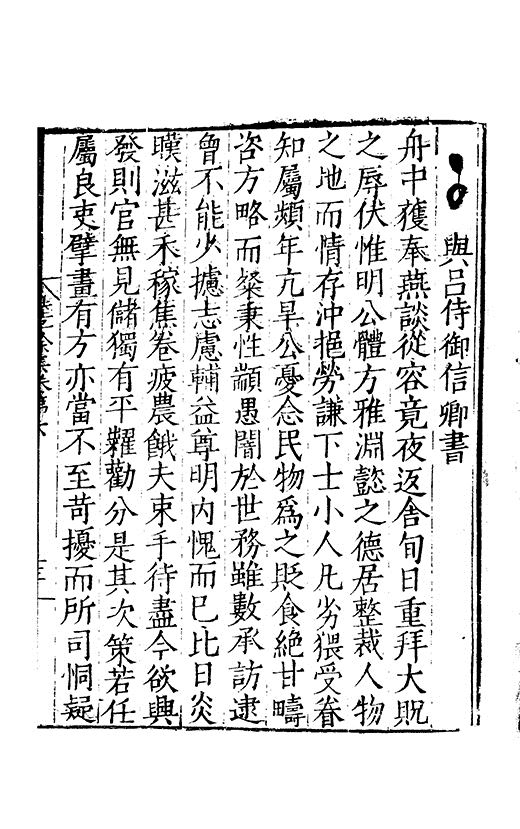 與呂侍御信卿書
舟中獲奉燕談從容竟夜返舍旬日重拜大貺
之辱伏惟明公體方雅淵懿之德居整裁人物
之地而情存沖挹勞謙下士小人凡劣猥受眷
知屬頻年亢旱公憂念民物爲之貶食絶甘疇
咨方略而粲秉性顓愚闇於世務雖數承訪逮
曾不能少攄志慮輔益尊明内愧而已比日炎
暵滋甚禾稼焦卷疲農餓夫束手待盡今欲興
發則官無見儲獨有平糶勸分是其次策若任
屬良吏擘畫有方亦當不至苛擾而所司恫疑